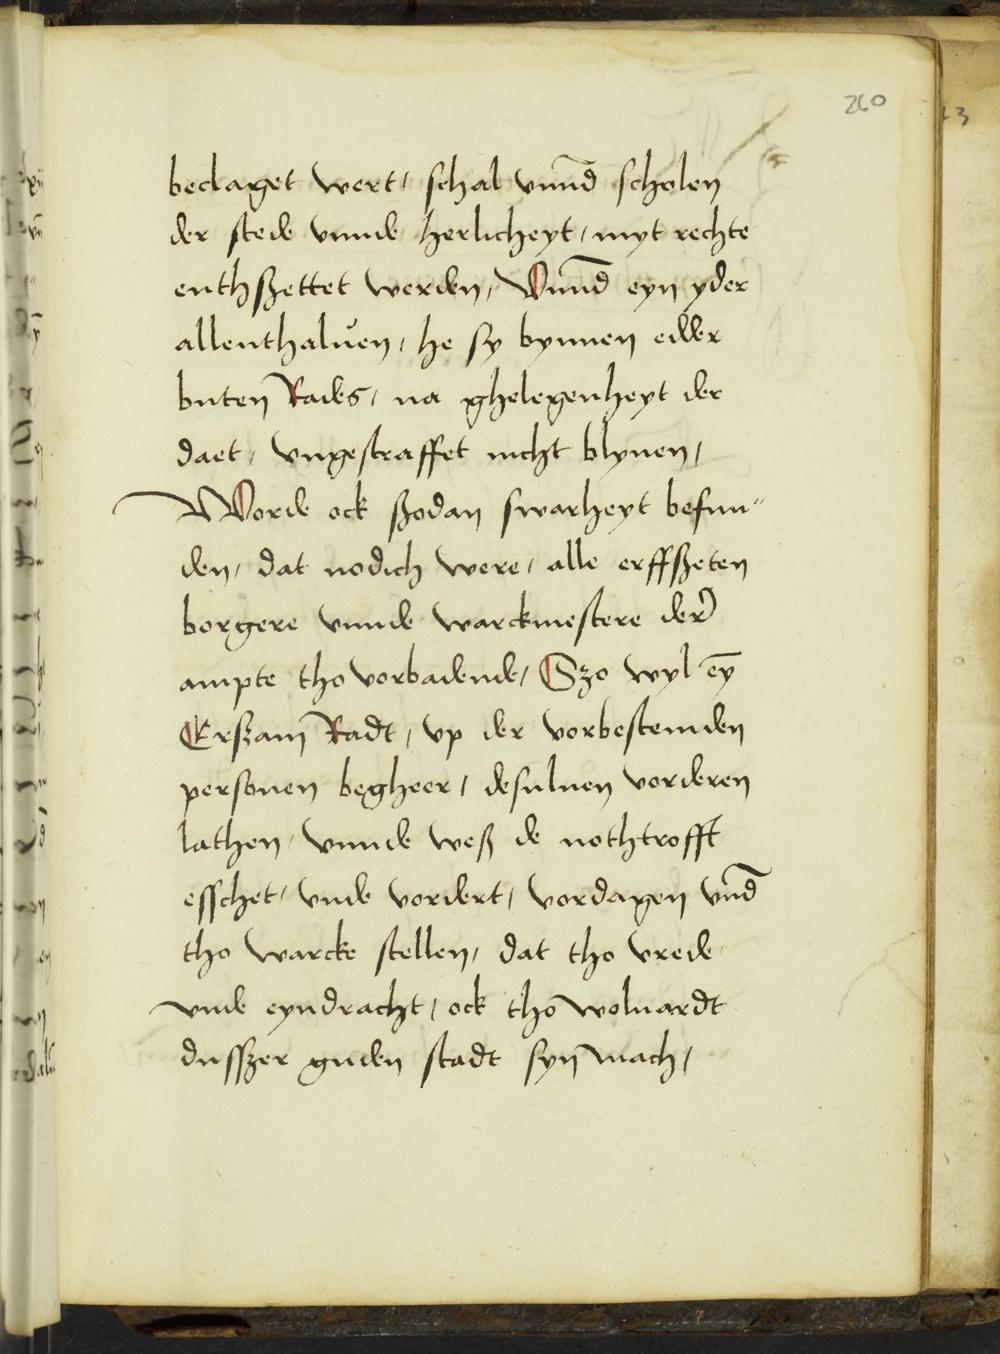 260
beclaget wert / schal vnnd scholen
der stede vnnde herlicheyt / myt rechte
enthszettet werden / Vnnd eyn yder
allenthaluen / he sy bynnen edder
buten Rades / na ghelegenheyt der
daet / vngestraffet nicht blyuen /
Worde ock szodan swarheyt befun"
den / dat nodich were / alle erffszeten
borgere vnnde warckmestere der
ampte tho vorbadende / Szo wyl ey̅
Erszam Radt / vp der vorbestemden
personen begheer / desuluen vorderen
lathen / vnnde wesz de nothtrofft
esschet / vnde vordert / vordagen vnd
tho warcke stellen / dat tho vrede
vnde eyndracht / ock tho woluardt
dusszer guden stadt syn mach /